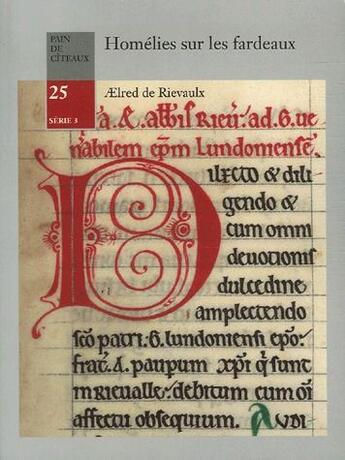 PAIN
DE
CÎTEAUX
25
SÉRIE 3
Homélies sur les fardeaux
Ælred de Rievaulx
a. & abbis Rieu. ad. G. ue
nabilem epm Lundomense
Dilecto & dili
gendo &
cum omni
deuotionis
dulcedine
amplectendo
sco patri. G. lundoniensi epo.
frat. A. paupum xpi q sunt
in rieualle. debitum cum oi
affectu obsequium. AUDI